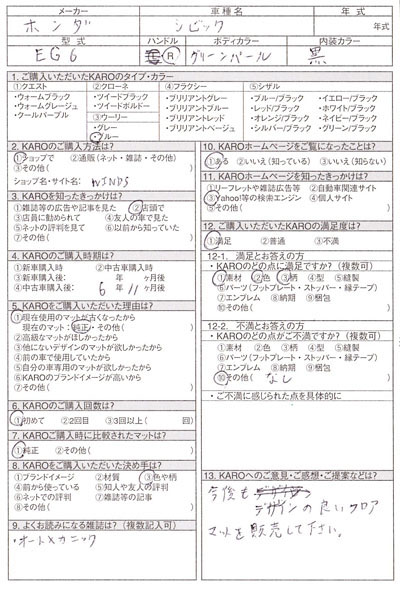 メーカー 車種名 年式
ホンダ シビック 年式
型式 ハンドル ボディカラー 内装カラー
EG6 R グリーンパール 黒
1. ご購入いただいたKAROのタイプ・カラー
①クエスト ②クローネ ④フラクシー ⑤シザル
・ウォームブラック ・ツイードブラック ・ブリリアントグレー ・ブルー/ブラック ・イエロー/ブラック
・ウォームグレージュ ・ツイードボルドー ・ブリリアントブルー ・レッド/ブラック ・ホワイト/ブラック
・クールパープル ③ウーリー ・ブリリアントレッド ・オレンジ/ブラック ・ネイビー/ブラック
・グレー ・ブリリアントベージュ ・シルバー/ブラック ・グリーン/ブラック
・ブルー
2. KAROのご購入方法は?
①ショップで ②通販(ネット・雑誌・その他)
③その他( )
ショップ名・サイト名: WINDS
3. KAROを知ったきっかけは?
①雑誌等の広告や記事を見た ②店頭で
③店員に勧められて ④友人の車で見た
⑤ネットの評判を見て ⑥以前から知っていた
⑦その他( )
4. KAROのご購入時期は?
①新車購入時 ②中古車購入時
③新車購入後: 年 ヶ月後
④中古車購入後: 6 年 11 ヶ月後
5. KAROをご購入いただいた理由は?
①現在使用のマットが古くなったから
現在のマット:純正・その他( )
②高級なマットがほしかったから
③他にないデザインのマットが欲しかったから
④前の車で使用していたから
⑤自分の車専用のマットが欲しかったから
⑥KAROのブランドイメージが高いから
⑦その他( )
6. KAROのご購入回数は?
①初めて ②2回目 ③3回以上( 回)
7. KAROご購入時に比較されたマットは?
①純正 ②その他( )
8. KAROをご購入いただいた決め手は?
①ブランドイメージ ②材質 ③色や柄
④前から使っている ⑤知人や友人の評判
⑥ネットでの評判 ⑦雑誌等の記事
⑧その他( )
9. よくお読みになる雑誌は?(複数記入可)
・オートメカニック
10. KAROホームページをご覧になったことは?
①ある ②いいえ(知っている) ③いいえ(知らない)
11. KAROホームページを知ったきっかけは?
①リーフレットや雑誌広告等 ②自動車関連サイト
③Yahoo!等の検索エンジン ④個人サイト
⑤その他( )
12. ご購入いただいたKAROの満足度は?
①満足 ②普通 ③不満
12-1. 満足とお答えの方
・KAROのどの点に満足ですか?(複数可)
①素材 ②色 ③柄 ④型 ⑤縫製
⑥パーツ(フットプレート・ストッパー・縁テープ)
⑦エンブレム ⑧納期 ⑨梱包
⑩その他( )
12-2. 不満とお答えの方
・KAROのどの点がご不満ですか?(複数可)
①素材 ②色 ③柄 ④型 ⑤縫製
⑥パーツ(フットプレート・ストッパー・縁テープ)
⑦エンブレム ⑧納期 ⑨梱包
⑩その他( なし )
・ご不満に感じられた点を具体的に
13. KAROへのご意見・ご感想・ご提案などは?
今後も
デザインの良いフロア
マットを販売して下さい。